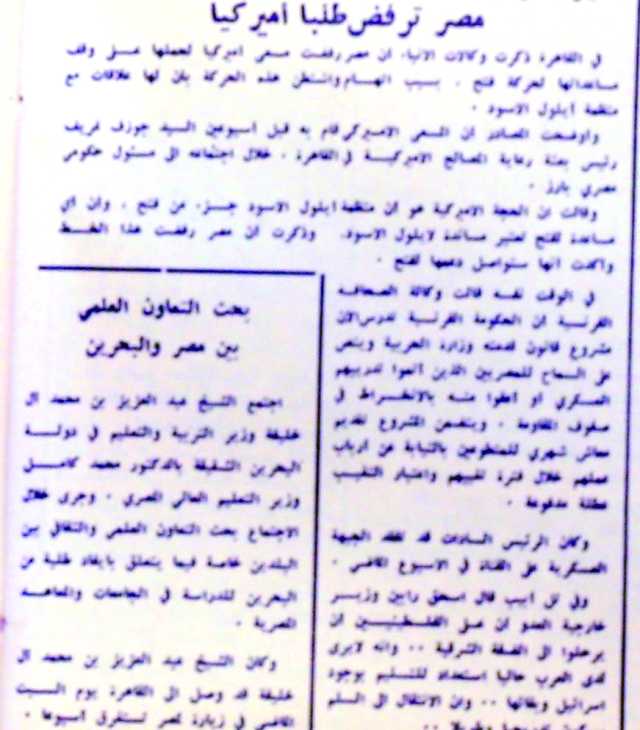 مصر ترفض طلبا أميركيا
في القاهرة ذكرت وكالات الانباء، ان مصر رفضت مسعى أميركيا لحملها على وقف
مساعداتها لحركة فتح ، بسبب اتهام واشنطن هذه الحركة بان لها علاقات مع
منظمة أيلول الاسود .
وأوضحت المصادر أن المسعى الاميركي قام به قبل أسبوعين السيد جوزف غريف
رئيس بعثة رعاية المصالح الاميركية في القاهرة ، خلال اجتماعه الى مسئول حكومي
مصري بارز .
وقالت ان الحجة الاميركية هو أن منظمة ايلول الاسود جزء من فتح ، وان أي
مساعدة لفتح تعتبر مساندة لايلول الاسود. وذكرت ان مصر رفضت هذا
وأكدت انها ستواصل دعمها لفتح .
في الوقت نفسه قالت وكالة الصحافة
الفرنسية ان الحكومة تدرس الان
مشروع قانون قدمته وزارة الحربية وينص
على السماح للمصريين الذين أتموا تدريبهم
العسكري أو أعفوا منه بالانخراط في
صفوف المقاومة . ويتضمن المشروع تقديم
معاش شهري للمتطوعين بالنيابة عن أرباب
عملهم خلال فترة تغيبهم واعتبار التغيب
عطلة مدفوعة .
وكان الرئيس السادات قد تفقد الجبهة
العسكرية على القناة في الاسبوع الماضي .
وفي تل أبيب قال اسحق رابين وزير
خارجية العدو ان على الفلسطينيين أن
يرحلوا الى الضفة الشرقية .. وانه لايرى
لدى العرب حاليا استعداد للتسليم بوجود
اسرائيل وبقائها .. وان الانتقال الى السلم
بحث التعاون العلمي
بين مصر والبحرين
اجتمع الشيخ عبد العزيز بن محمد ال
خليفة وزير التربية والتعليم في دولة
البحرين الشقيقة بالدكتور محمد كامل
وزير التعليم العالي المصري . وجرى خلال
الاجتماع بحث التعاون العلمي والثقافي بين
البلدين خاصة فيما يتعلق بايفاد طلبة من
البحرين للدراسة في الجامعات والمعاهد
المصرية .
وكان الشيخ عبد العزيز بن محمد ال
خليفة قد وصل الى القاهرة يوم السبت
الماضي في زيارة لمصر تستغرق أسبوعا .